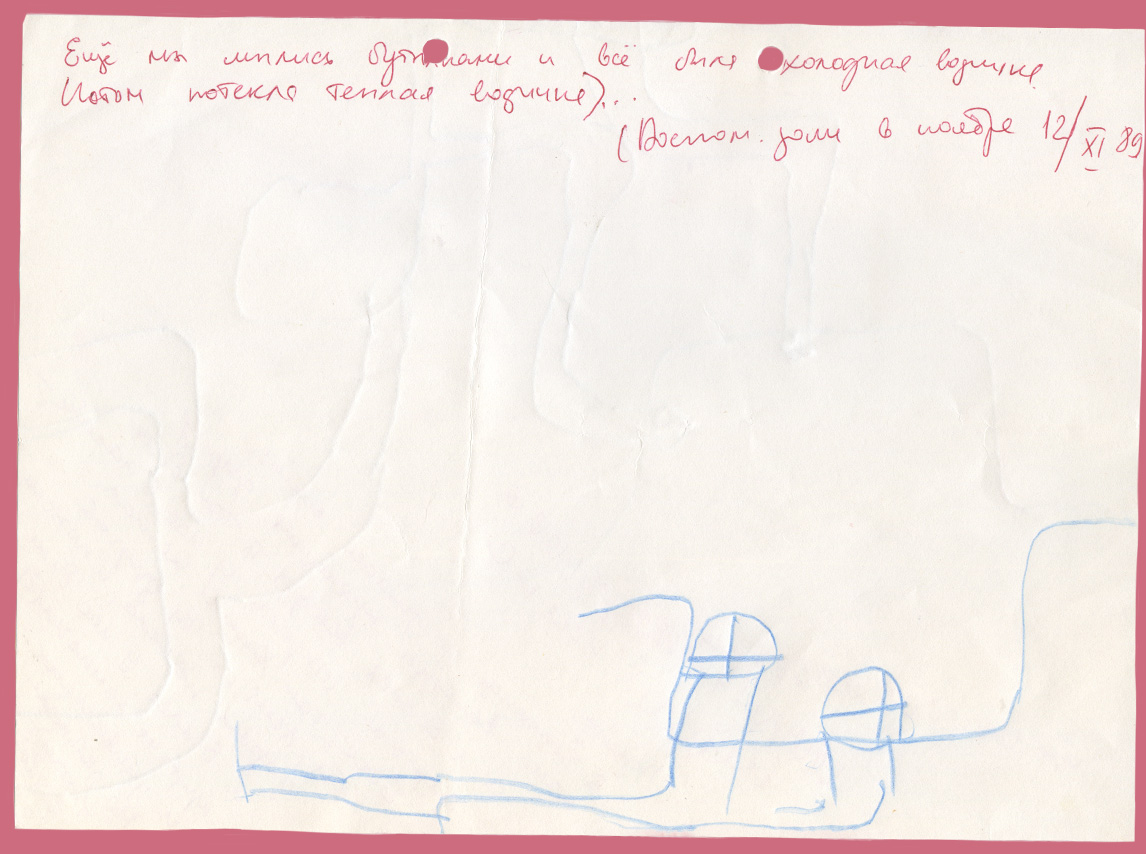 Ещё мы мылись бутылками и всё была холодная водичка
Потом потекла теплая водичка)...
(Воспом. в ноябре 12/XI 89